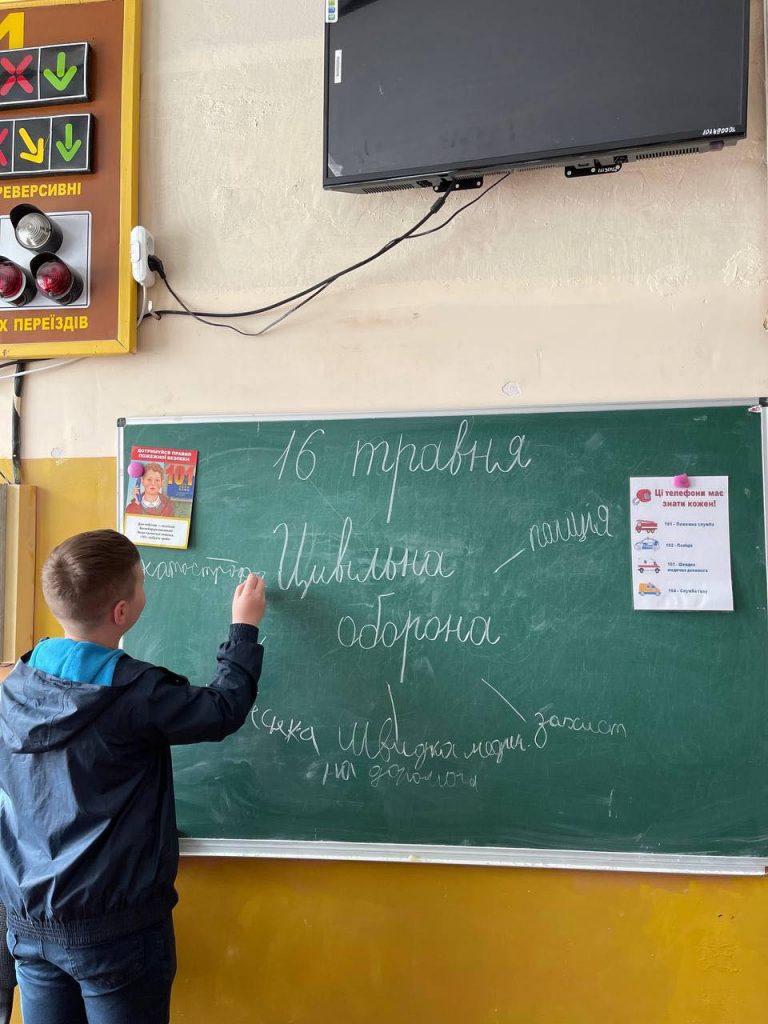 РЕВЕРСИВНІ
Х ПЕРЕЇЗДІВ
ДОТРИМУЙСЯ ПРАВИЛ
ПОЖЕЖНОЇ БЕЗПЕКИ
101
Ці телефони має
знати кожен!
101 - Пожежна служба
102 - Поліція
103 - Швидка
медична допомога
104 - Служба газу
16 травня
Цивільна
оборона
поліція
катострофа
Швидка медич.
на допомога
захист